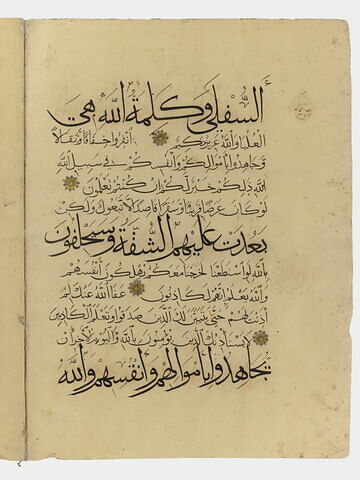 السفلى وكلمة الله هي
العليا والله عزيز حكيم انفروا خفافا وثقالا
وجاهدوا باموالكم وانفسكم في سبيل الله
ذلكم خير لكم ان كنتم تعلمون
لو كان عرضا قريبا وسفرا قاصدا لاتبعوك ولكن
بعدت عليهم الشقة وسيحلفون
بالله لو استطعنا لخرجنا معكم يهلكون انفسهم
والله يعلم انهم لكاذبون عفا الله عنك لم
اذنت لهم حتى يتبين لك الذين صدقوا وتعلم الكاذبين
لا يستأذنك الذين يؤمنون بالله واليوم الاخر ان
يجاهدوا باموالهم وانفسهم والله